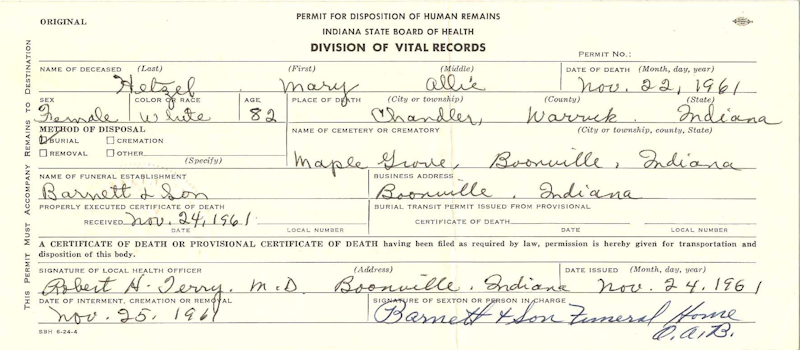 ORIGINAL
PERMIT FOR DISPOSITION OF HUMAN REMAINS
INDIANA STATE BOARD OF HEALTH
DIVISION OF VITAL RECORDS
PERMIT NO.:
THIS PERMIT MUST ACCOMPANY REMAINS TO DESTINATION
NAME OF DECEASED (Last) (First) (Middle) DATE OF DEATH (Month, day, year)
Hetzel Mary Allie Nov. 22, 1961
SEX COLOR OR RACE AGE PLACE OF DEATH (City or township) (County) (State)
Female White 82 Chandler, Warrick. Indiana
METHOD OF DISPOSAL NAME OF CEMETERY OR CREMATORY (City or township, county, State)
BURIAL CREMATION
REMOVAL OTHER
(Specify)
Maple Grove, Boonville, Indiana
NAME OF FUNERAL ESTABLISHMENT BUSINESS ADDRESS
Barnett & Son Boonville. Indiana
PROPERLY EXECUTED CERTIFICATE OF DEATH BURIAL TRANSIT PERMIT ISSUED FROM PROVISIONAL
RECEIVED Nov. 24, 1961 CERTIFICATE OF DEATH
DATE LOCAL NUMBER DATE LOCAL NUMBER
A CERTIFICATE OF DEATH OR PROVISIONAL CERTIFICATE OF DEATH having been filed as required by law, permission is hereby given for transportation and
disposition of this body.
SIGNATURE OF LOCAL HEALTH OFFICER (Address) DATE ISSUED (Month, day, year)
Robert H. Terry. M.D. Boonville. Indiana Nov. 24. 1961
DATE OF INTERMENT, CREMATION OR REMOVAL SIGNATURE OF SEXTON OR PERSON IN CHARGE
Nov. 25. 1961 Barnett & Son Funeral Home
O.A.B.
SBH 6-24-4